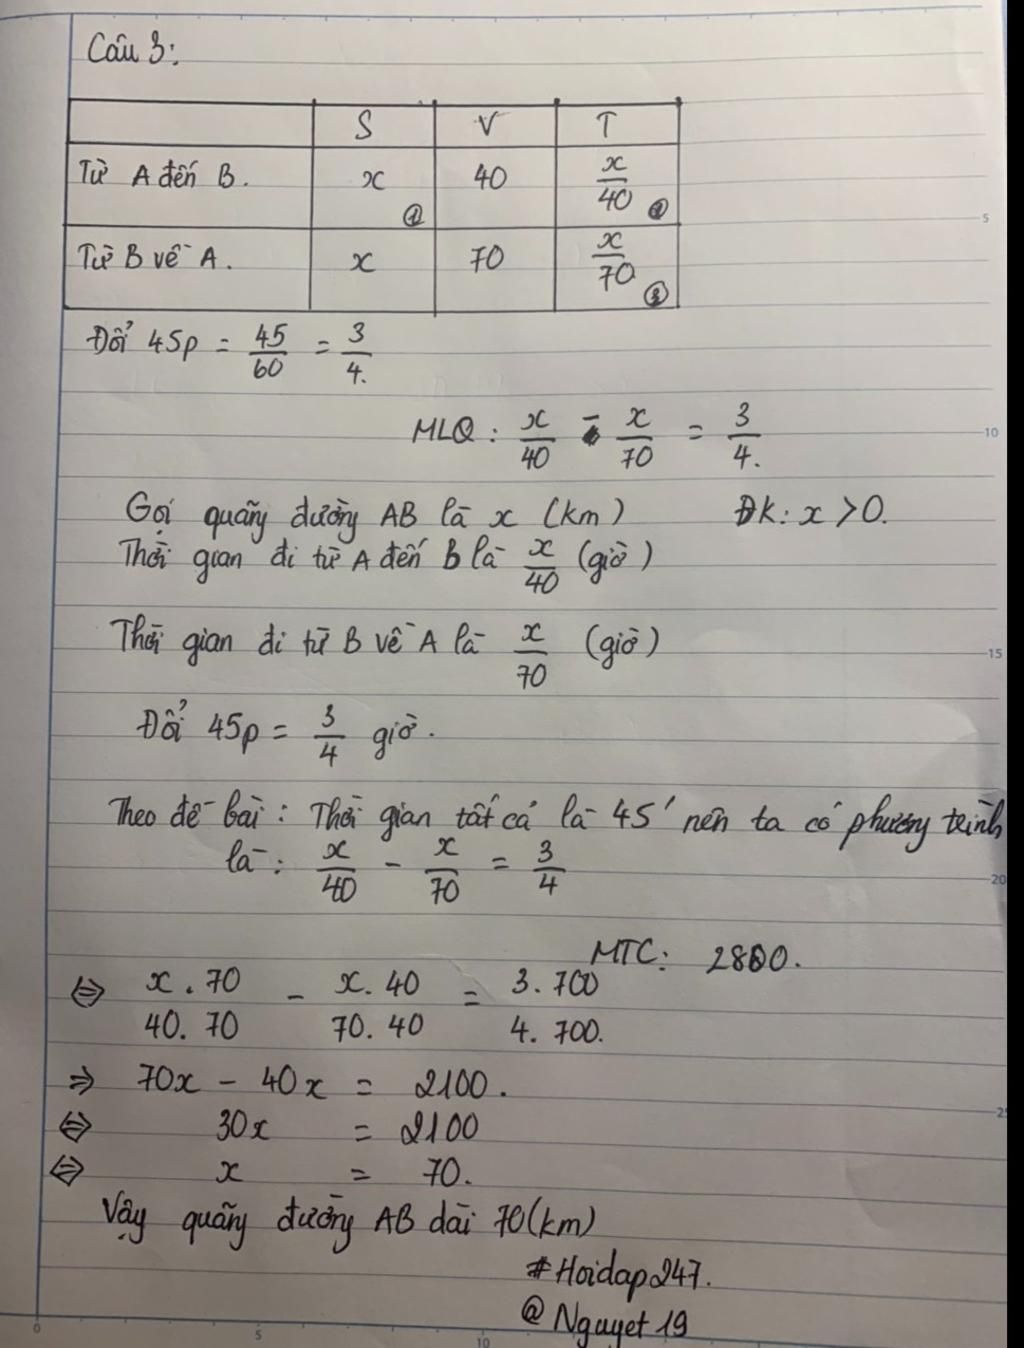 Câu 3:
S V T
Từ A đến B. x 40 x/40 ②
①
Từ B về A. x 70 x/70 ③
Đổi 45p = 45/60 = 3/4.
MLQ: x/40 - x/70 = 3/4.
Gọi quãng đường AB là x (km) ĐK: x > 0.
Thời gian đi từ A đến B là x/40 (giờ)
Thời gian đi từ B về A là x/70 (giờ)
Đổi 45p = 3/4 giờ.
Theo đề bài: Thời gian tất cả là 45' nên ta có phương trình
là: x/40 - x/70 = 3/4
MTC: 2800.
⇔ x.70/40.70 - x.40/70.40 = 3.700/4.700.
⇒ 70x - 40x = 2100.
⇔ 30x = 2100
⇔ x = 70.
Vậy quãng đường AB dài 70 (km)
#Hoidap247.
@Nguyet19
5
10
15
20
25
0 5 10